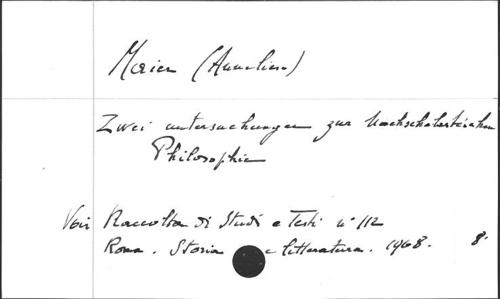 Maier (Anneliese)
Zwei untersuchungen zur Nachscholastischen
Philosophie
Voir Raccolta di Studi e Testi n° 112
Roma. Storia e litteratura. 1968. 8°